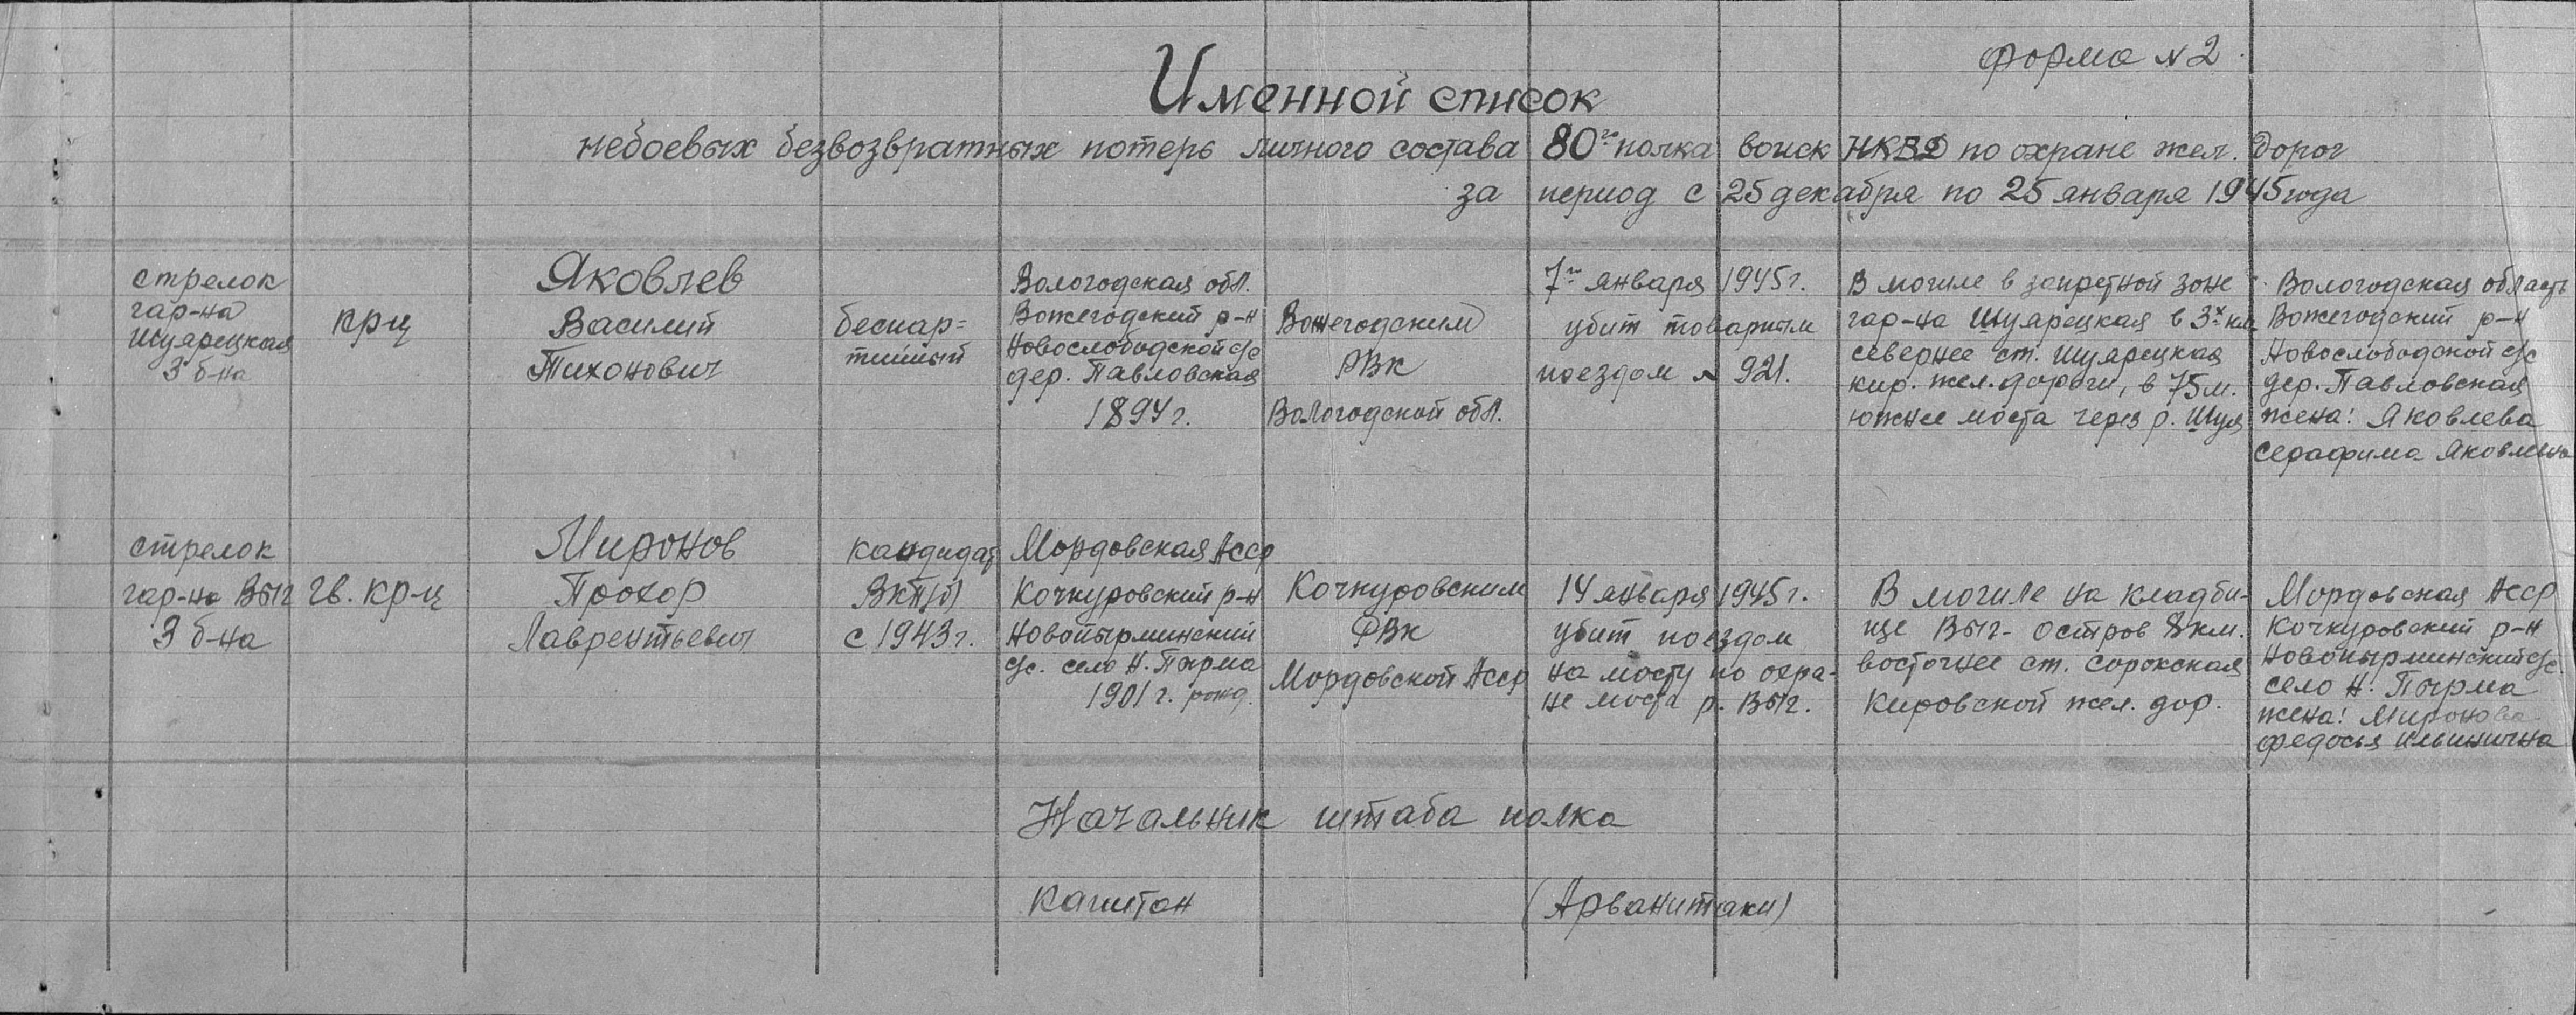 Форма N 2
Именной список
небоевых безвозвратных потерь личного состава 80го полка войск НКВД по охране жел. дорог
за период с 25 декабря по 25 января 1945 года
стрелок
гар-на
Шуярецкая
3 б-на
кр-ц
Яковлев
Василий
Тихонович
беспар=
тийный
Вологодская обл.
Вожегодский р-н
Новослободской с/с
дер. Павловская
1894 г.
Вожегодским
РВК
Вологодской обл.
7го января 1945 г.
убит товарным
поездом N 921.
В могиле в запретной зоне
гар-на Шуярецкая в 3х км
севернее ст. Шуярецкая
кир. жел. дороги, в 75 м.
южнее моста через р. Шуя
Вологодская область
Вожегодский р-н
Новослободской с/с
дер. Павловская
жена: Яковлева
Серафима Яковлевна
стрелок
гар-на Выг
3 б-на
гв. кр-ц
Миронов
Прохор
Лаврентьевич
кандидат
ВКП(б)
с 1943 г.
Мордовская Асср
Кочкуровский р-н
Новопырминский
с/с. село Н. Пырма
1901 г. рожд.
Кочкуровским
РВК
Мордовской Асср
14 января 1945 г.
убит поездом
на мосту по охра-
не моста р. Выг.
В могиле на кладби-
ще Выг-остров 8 км.
восточнее ст. Сорокская
Кировской жел. дор.
Мордовская Асср
Кочкуровский р-н
Новопырминский с/с.
село Н. Пырма
жена: Миронова
Федосья Ильинична
Начальник штаба полка
капитан (Арванитаки)